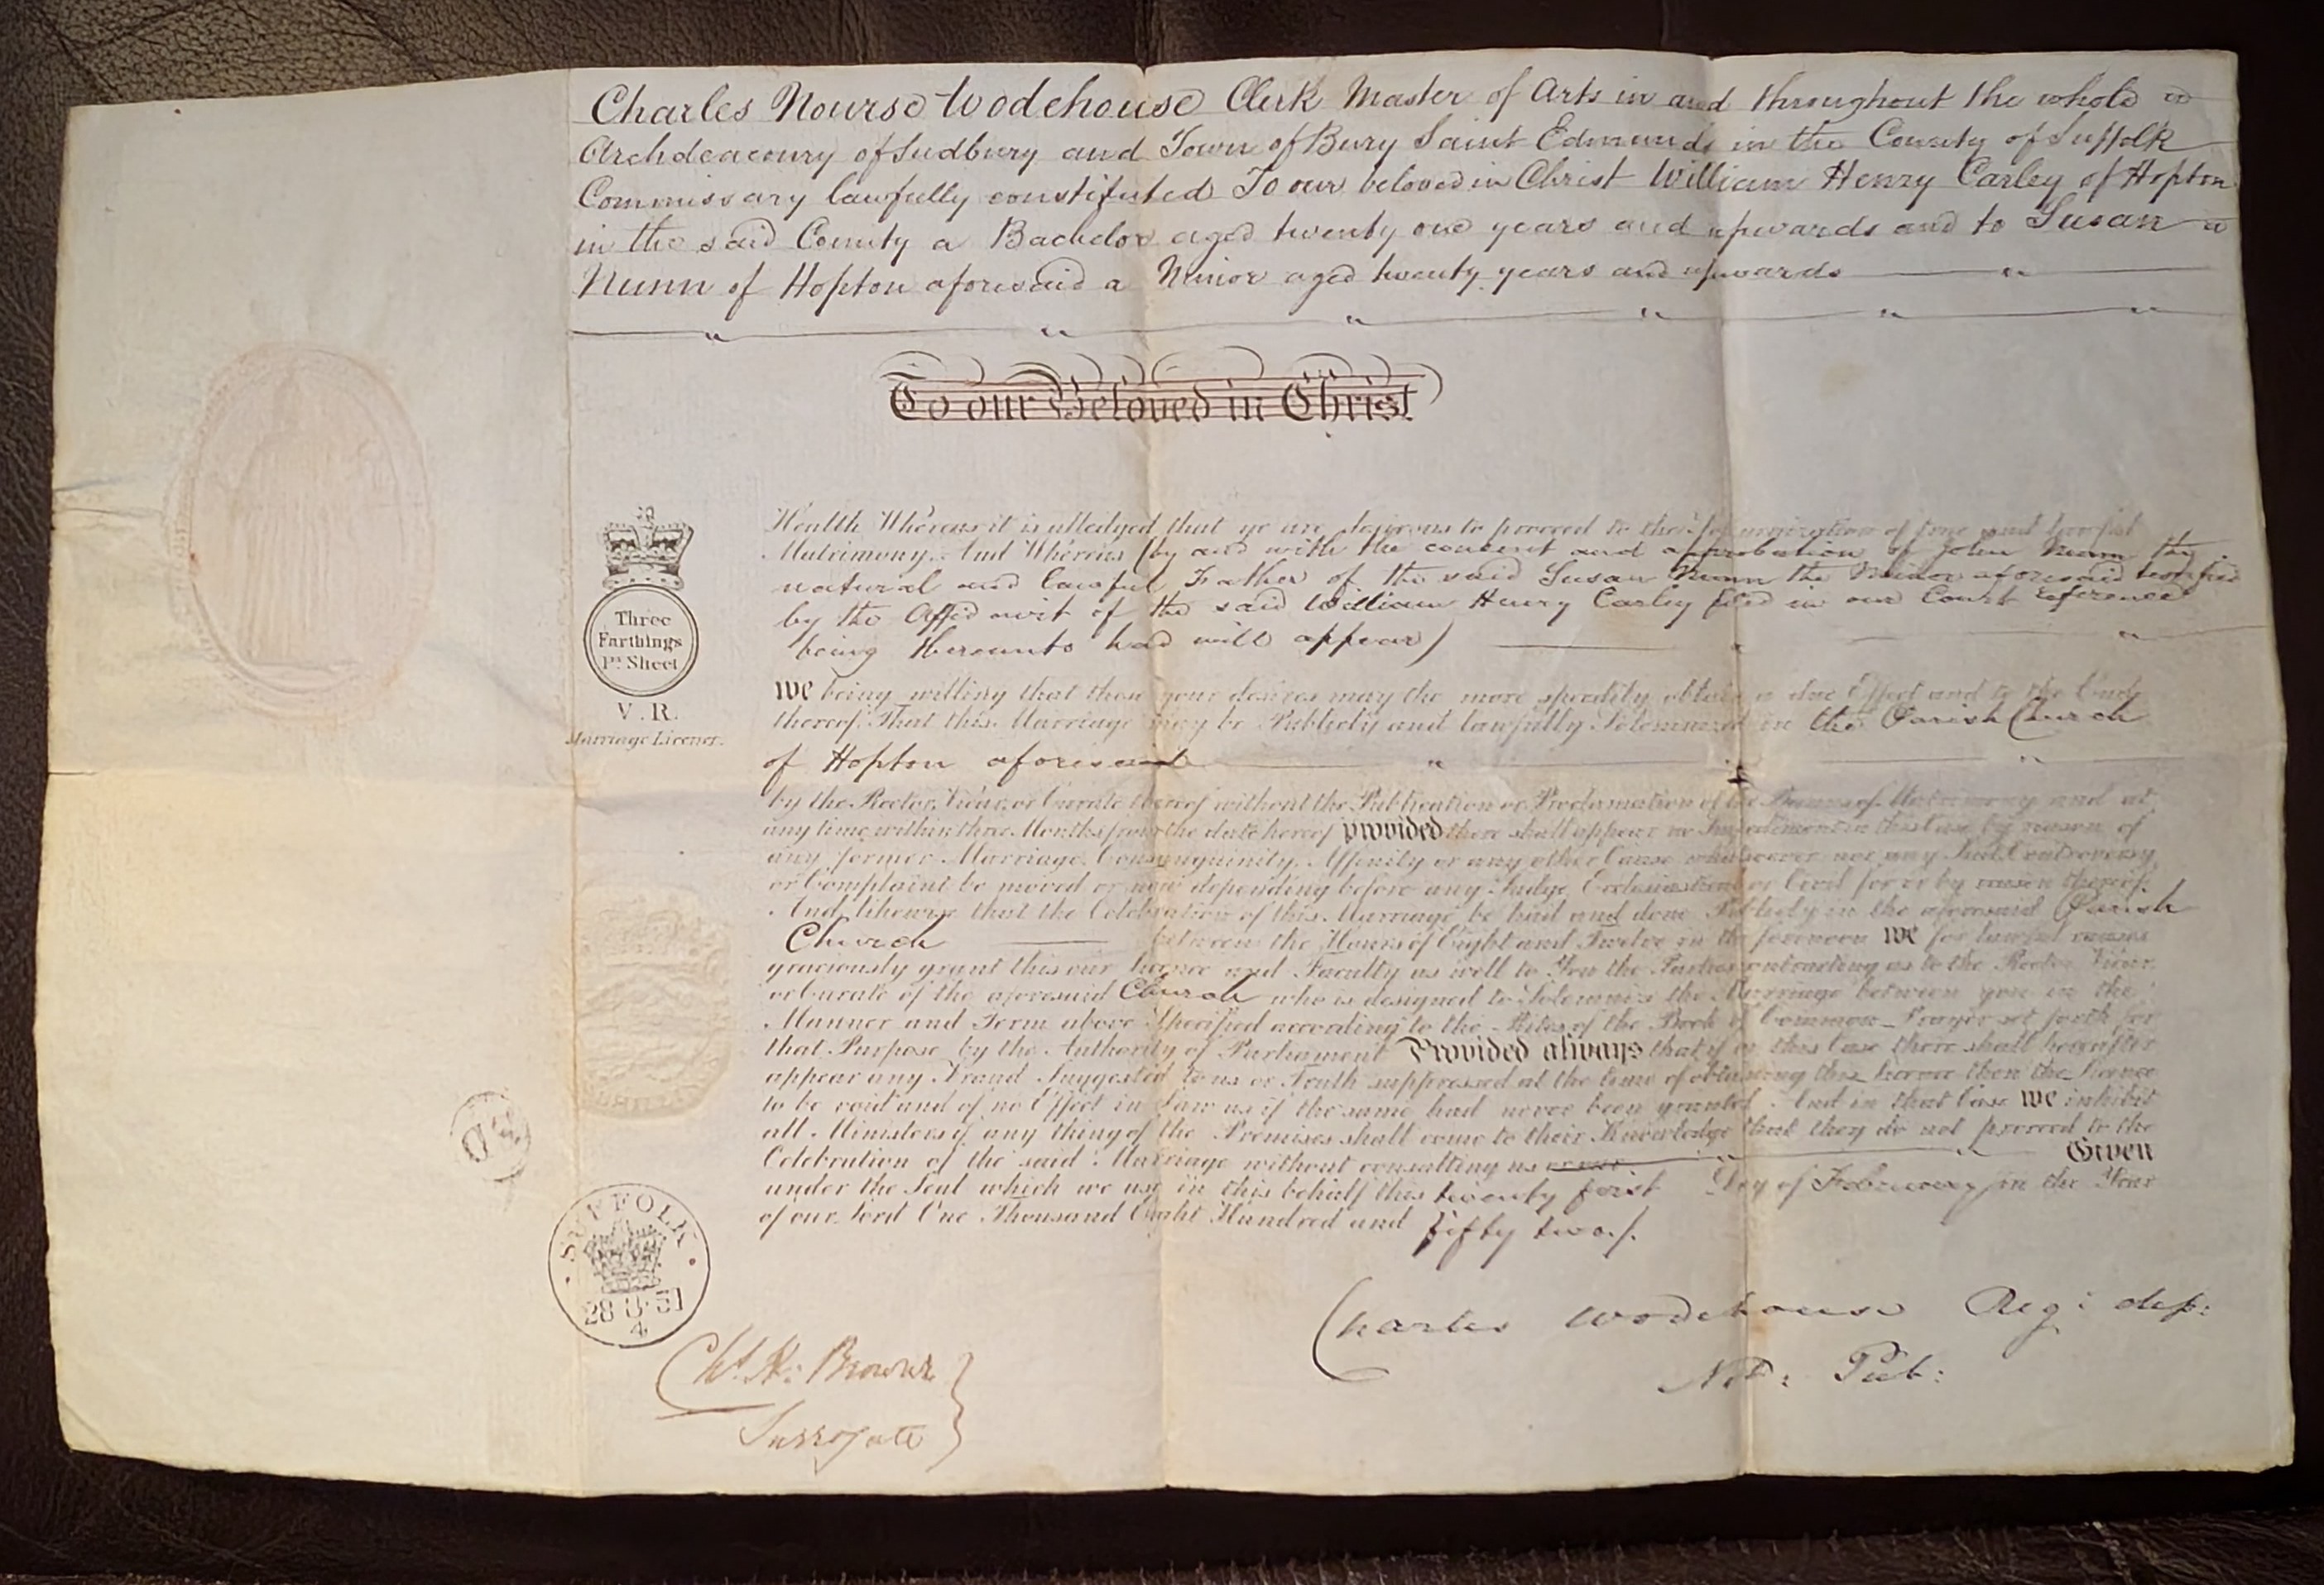 Charles Nourse Wodehouse Clerk Master of Arts in and throughout the whole
Archdeaconry of Sudbury and Town of Bury Saint Edmunds in the County of Suffolk
Commissary lawfully constituted To our beloved in Christ William Henry Carley of Hopton
in the said County a Bachelor aged twenty one years and upwards and to Susan
Nunn of Hopton aforesaid a Minor aged twenty years and upwards
To our Beloved in Christ
Health Whereas it is alledged that ye are desirous to proceed to the Solemnization of true and lawful
Matrimony. And Whereas (by and with the consent and approbation of John Nunn the
natural and lawful Father of the said Susan Nunn the Minor aforesaid testified
by the Affidavit of the said William Henry Carley filed in our Court reference
being thereunto had will appear)
Three
Farthings
Pr. Sheet
V. R.
Marriage Licence.
We being willing that these your desires may the more speedily obtain a due Effect and to the End
thereof That this Marriage may be Publicly and lawfully Solemnized in the Parish Church
of Hopton aforesaid
by the Rector, Vicar, or Curate thereof without the Publication or Proclamation of the Banns of Matrimony and at
any time within three Months from the date hereof provided there shall appear no Impediment in this Case by reason of
any former Marriage, Consanguinity, Affinity or any other Cause whatsoever nor any Suit Controversy
or Complaint be moved or now depending before any Judge, Ecclesiastical or Civil for or by reason thereof.
And likewise that the Celebration of this Marriage be had and done Publicly in the aforesaid Parish
Church between the Hours of Eight and Twelve in the forenoon We for lawful causes
graciously grant this our licence and Faculty as well to You the Parties contracting as to the Rector Vicar
or Curate of the aforesaid Church who is designed to Solemnize the Marriage between you in the
Manner and Form above Specified according to the Rites of the Book of Common Prayer set forth for
that Purpose by the Authority of Parliament Provided always that if in this Case there shall hereafter
appear any Fraud Suggested to us or Truth suppressed at the time of obtaining this licence then the Licence
to be void and of no Effect in Law as if the same had never been granted. And in that Case We inhibit
all Ministers if any thing of the Premises shall come to their Knowledge that they do not proceed to the
Celebration of the said Marriage without consulting us Given
under the Seal which we use in this behalf this twenty first Day of February in the Year
of our Lord One Thousand Eight Hundred and fifty two.
SUFFOLK
28 51
4
Charles Wodehouse Reg: dep:
Not: Pub:
W. H: Browne
Surrogate